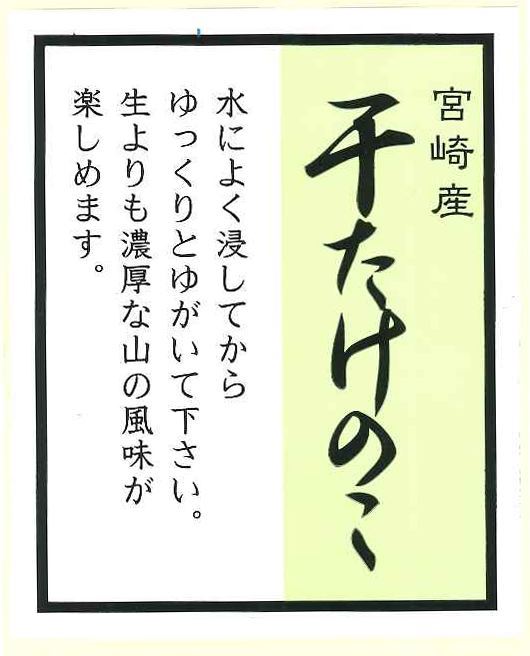 宮崎産
干たけのこ
水によく浸してから
ゆっくりとゆがいて下さい。
生よりも濃厚な山の風味が
楽しめます。